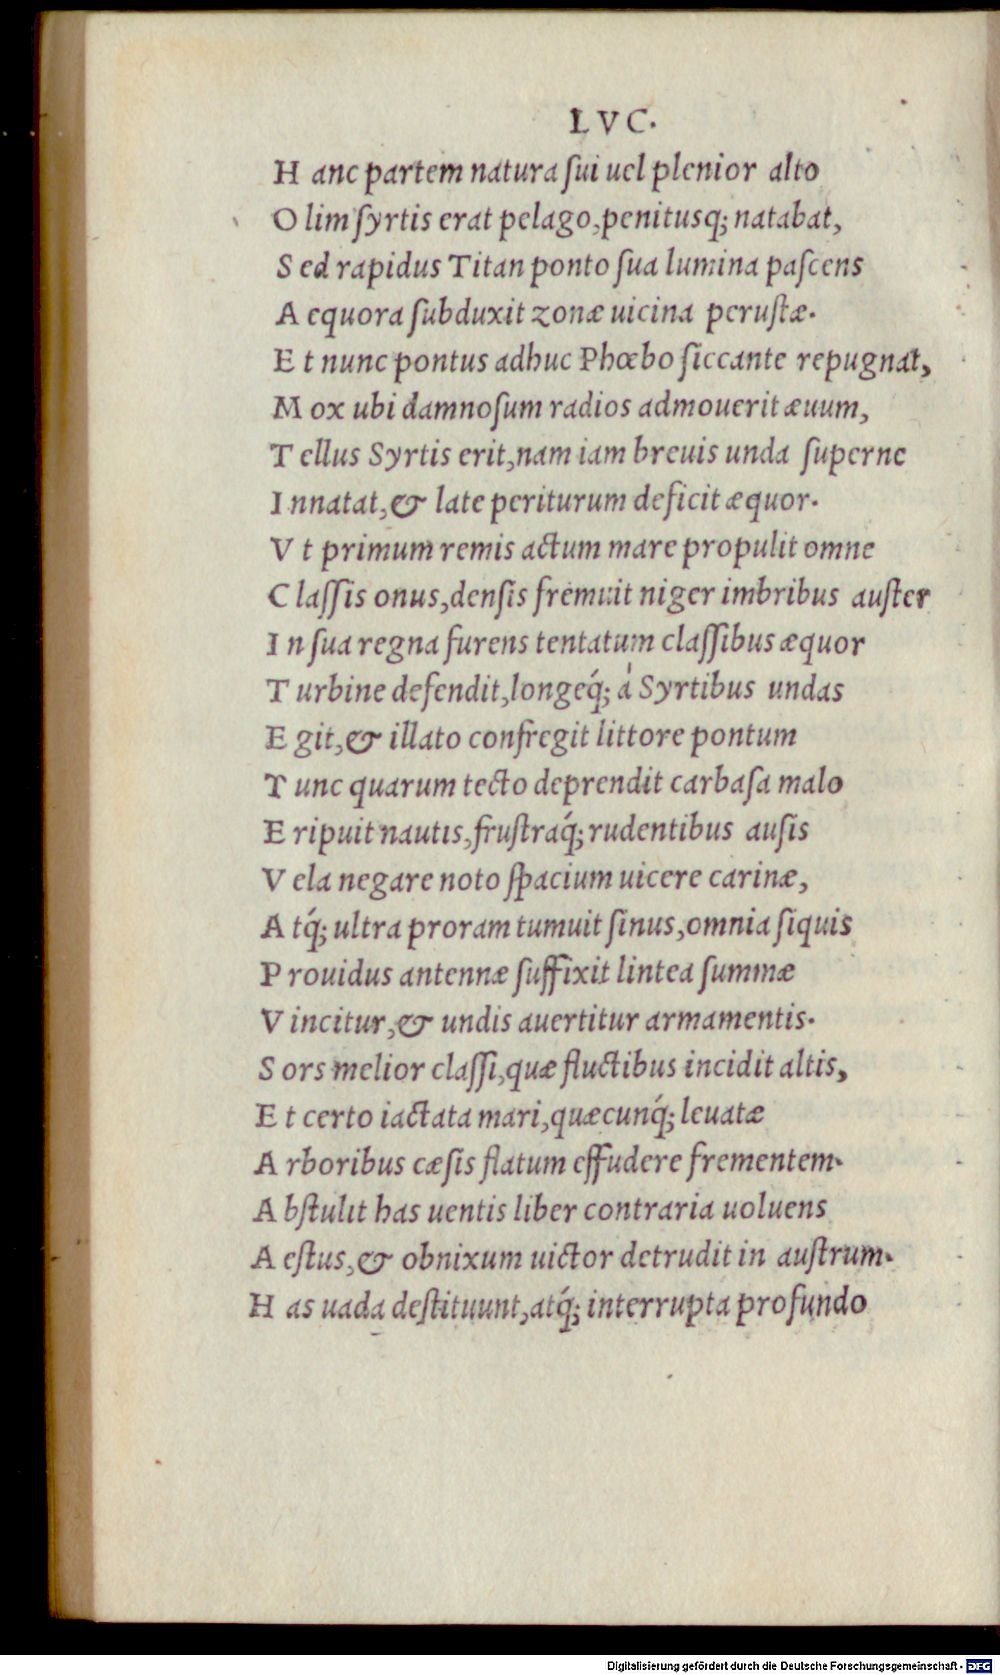 LVC.
H anc partem natura ſui uel plenior alto
O lim ſyrtis erat pelago, penitusq; natabat,
S ed rapidus Titan ponto ſua lumina paſcens
A equora ſubduxit zonæ uicina peruſtæ.
E t nunc pontus adhuc Phœbo ſiccante repugnat,
M ox ubi damnoſum radios admouerit æuum,
T ellus Syrtis erit, nam iam breuis unda ſuperne
I nnatat, & late periturum deficit æquor.
V t primum remis actum mare propulit omne
C laſſis onus, denſis fremuit niger imbribus auſter
I n ſua regna furens tentatum claſſibus æquor
T urbine defendit, longeq́; á Syrtibus undas
E git, & illato confregit littore pontum
T unc quarum tecto deprendit carbaſa malo
E ripuit nautis, fruſtraq́; rudentibus auſis
V ela negare noto ſpacium uicere carinæ,
A tq́; ultra proram tumuit ſinus, omnia ſiquis
P rouidus antennæ ſuffixit lintea ſummæ
V incitur, & undis auertitur armamentis.
S ors melior claſſi, quæ fluctibus incidit altis,
E t certo iactata mari, quæcunq́; leuatæ
A rboribus cæſis flatum effudere frementem.
A bſtulit has uentis liber contraria uoluens
A eſtus, & obnixum uictor detrudit in auſtrum.
H as uada deſtituunt, atq́; interrupta profundo
Digitalisierung gefördert durch die Deutsche Forschungsgemeinschaft - DFG